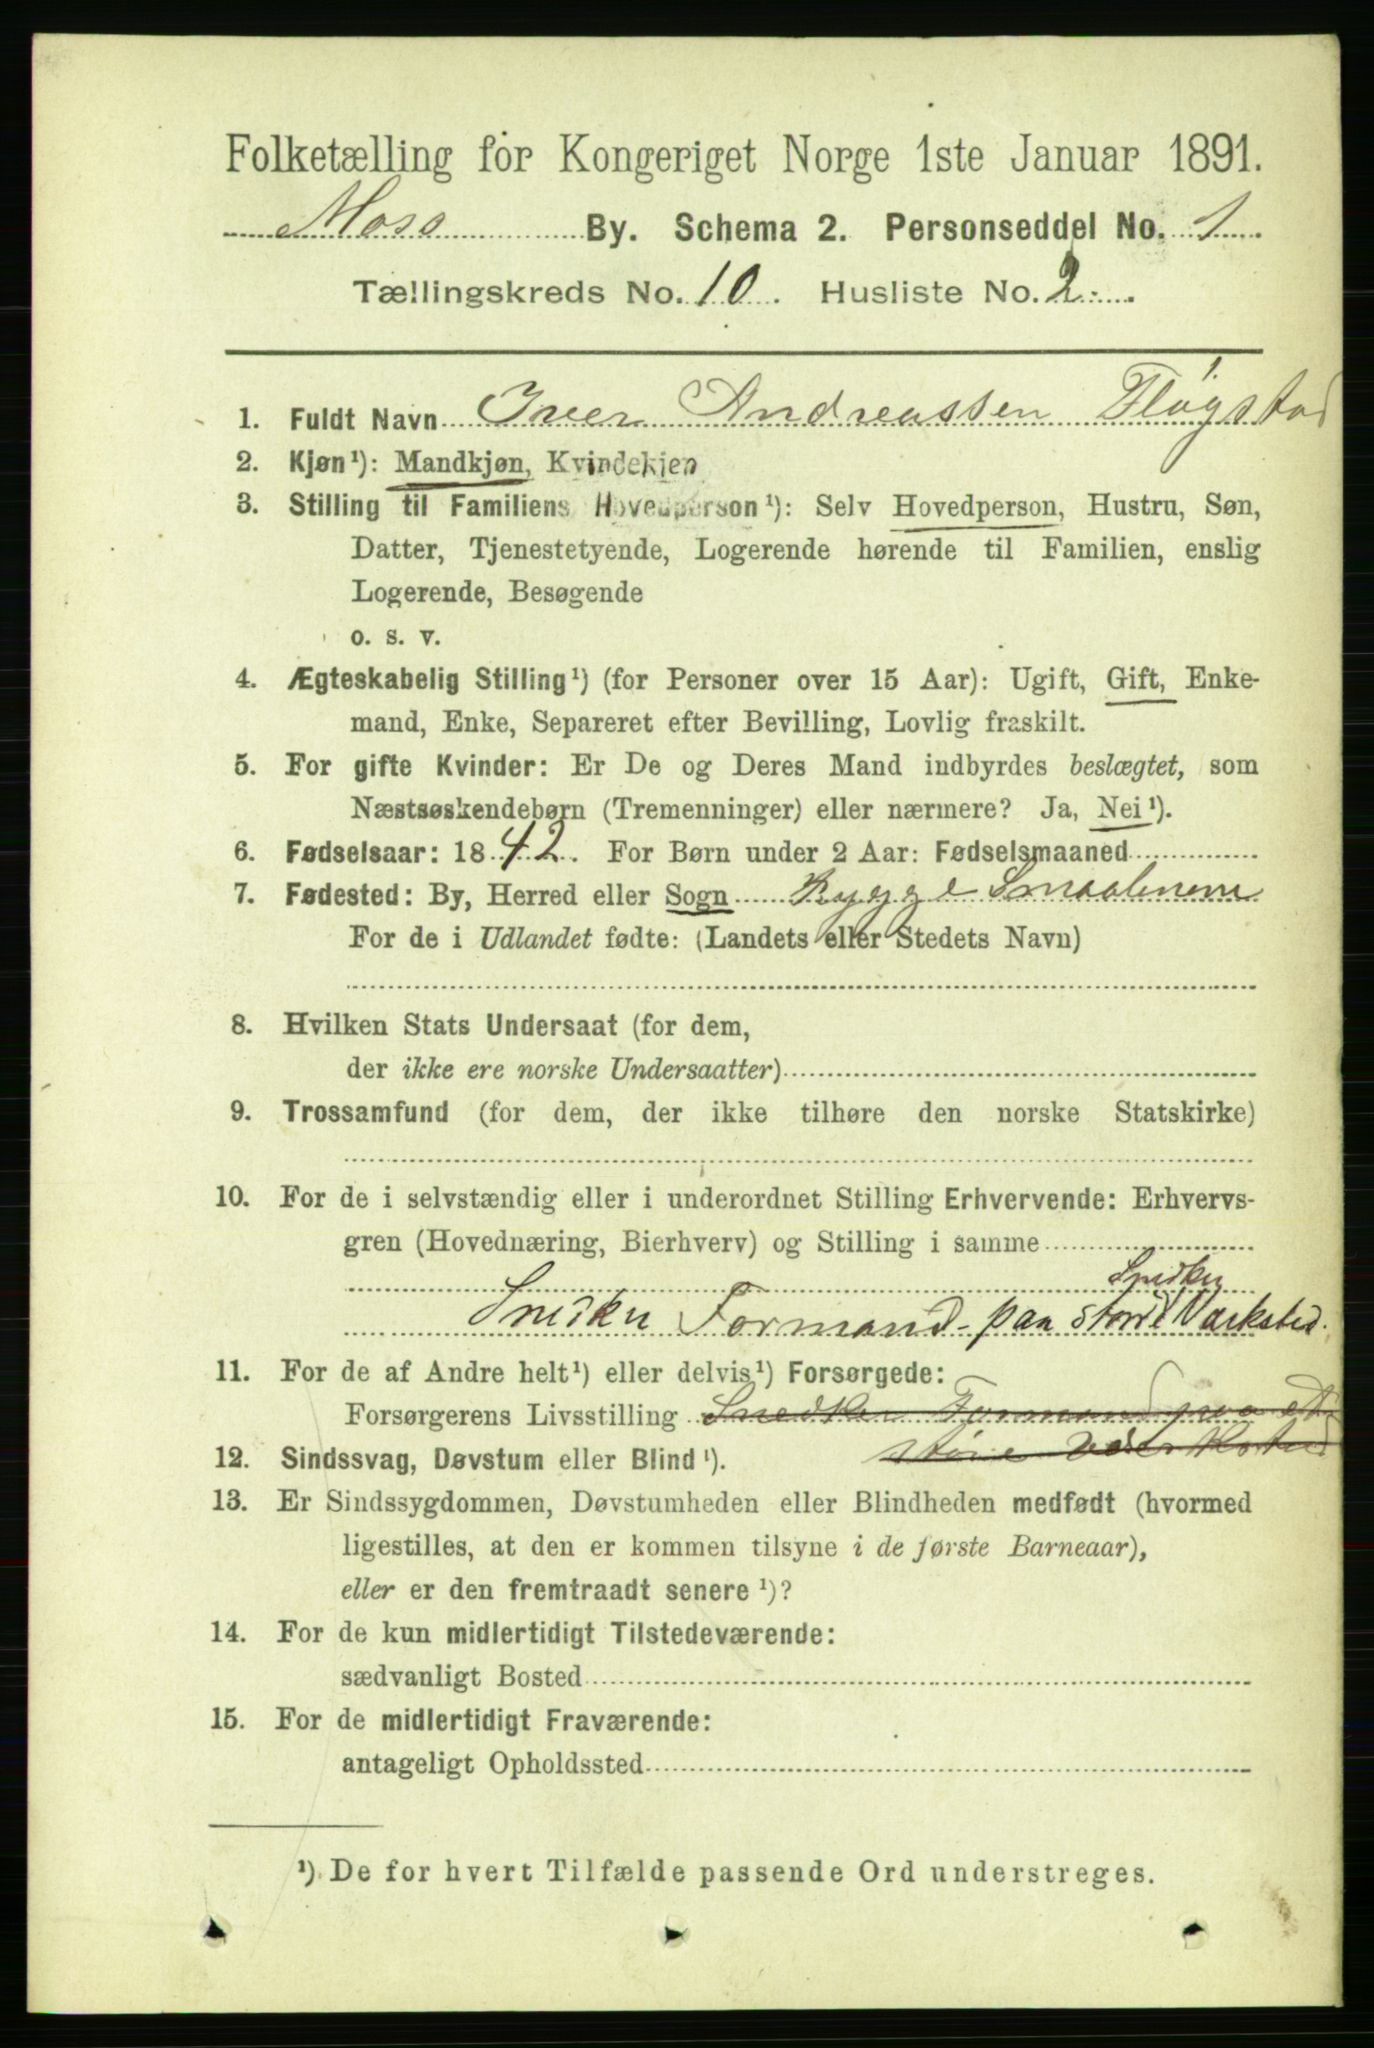 Folketælling for Kongeriget Norge 1ste Januar 1891.
Moss By. Schema 2. Personseddel No. 1
Tællingskreds No. 10. Husliste No. 2.
1. Fuldt Navn Iver Andreassen Fløgstad
2. Kjøn¹): Mandkjøn, Kvindekjen
3. Stilling til Familiens Hovedperson¹): Selv Hovedperson, Hustru, Søn,
Datter, Tjenestetyende, Logerende hørende til Familien, enslig
Logerende, Besøgende
o. s. v.
4. Ægteskabelig Stilling¹) (for Personer over 15 Aar): Ugift, Gift, Enke-
mand, Enke, Separeret efter Bevilling, Lovlig fraskilt.
5. For gifte Kvinder: Er De og Deres Mand indbyrdes beslægtet, som
Næstsøskendebørn (Tremenninger) eller nærmere? Ja, Nei¹).
6. Fødselsaar: 1842. For Børn under 2 Aar: Fødselsmaaned
7. Fødested: By, Herred eller Sogn Rygge Smaalenene
For de i Udlandet fødte: (Landets eller Stedets Navn)
8. Hvilken Stats Undersaat (for dem,
der ikke ere norske Undersaatter)
9. Trossamfund (for dem, der ikke tilhøre den norske Statskirke)
10. For de i selvstændig eller i underordnet Stilling Erhvervende: Erhvervs-
gren (Hovednæring, Bierhverv) og Stilling i samme
Snedker
Snedker Formand - paa større Værksted.
11. For de af Andre helt¹) eller delvis¹) Forsørgede:
Forsørgerens Livsstilling Snedker Formand paa et
større Værksted
12. Sindssvag, Døvstum eller Blind¹).
13. Er Sindssygdommen, Døvstumheden eller Blindheden medfødt (hvormed
ligestilles, at den er kommen tilsyne i de første Barneaar),
eller er den fremtraadt senere¹)?
14. For de kun midlertidigt Tilstedeværende:
sædvanligt Bosted
15. For de midlertidigt Fraværende:
antageligt Opholdssted
¹) De for hvert Tilfælde passende Ord understreges.